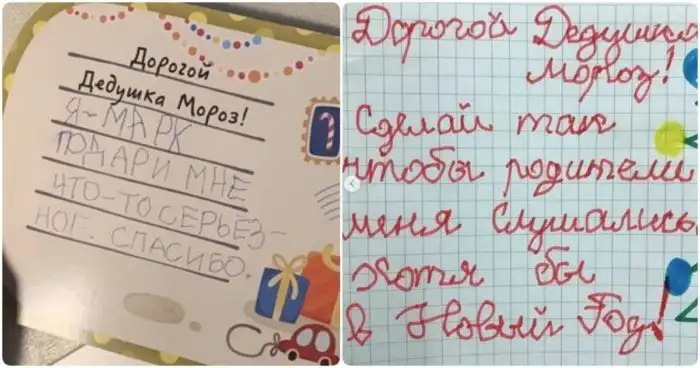 Дорогой
Дедушка Мороз!
Я-МАРК
ПОДАРИ МНЕ
ЧТО-ТО СЕРЬЁЗ-
НОГ. СПАСИБО.
Дорогой Дедушка
мороз!
Сделай так
чтобы родители
меня слушались
хотя бы
в Новый Год!